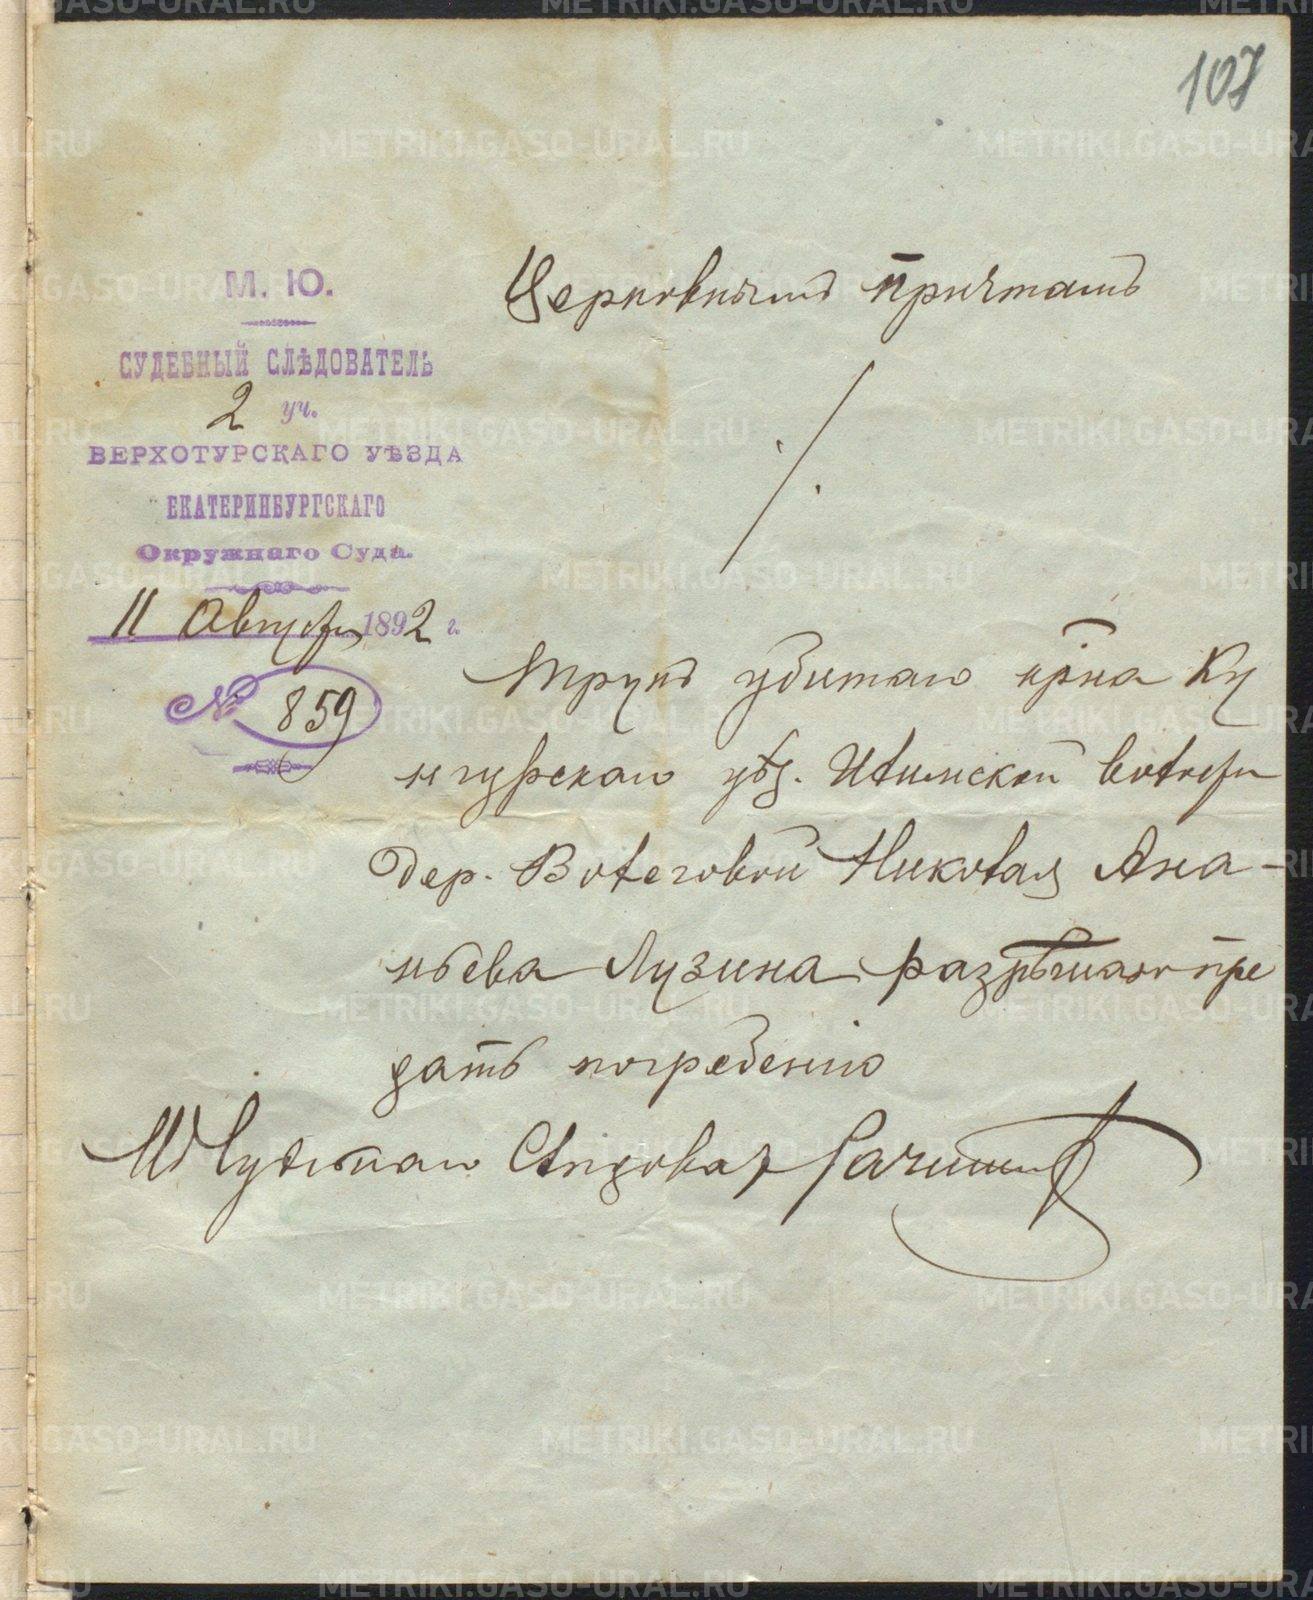 107
М. Ю.
СУДЕБНЫЙ СЛѢДОВАТЕЛЬ
2 уч.
ВЕРХОТУРСКАГО УѢЗДА
ЕКАТЕРИНБУРГСКАГО
Окружнаго Суда.
11 Августа 1892 г.
№ 859
Церковнымъ причтамъ
Трупъ убитаго кр̄на Ку
нгурскаго уѣз. Илимской волости
дер. Волеговой Николая Ана-
ньева Лузина разрѣшаю пре
дать погребенію
Судебный Слѣдователь
METRIKI.GASO-URAL.RU